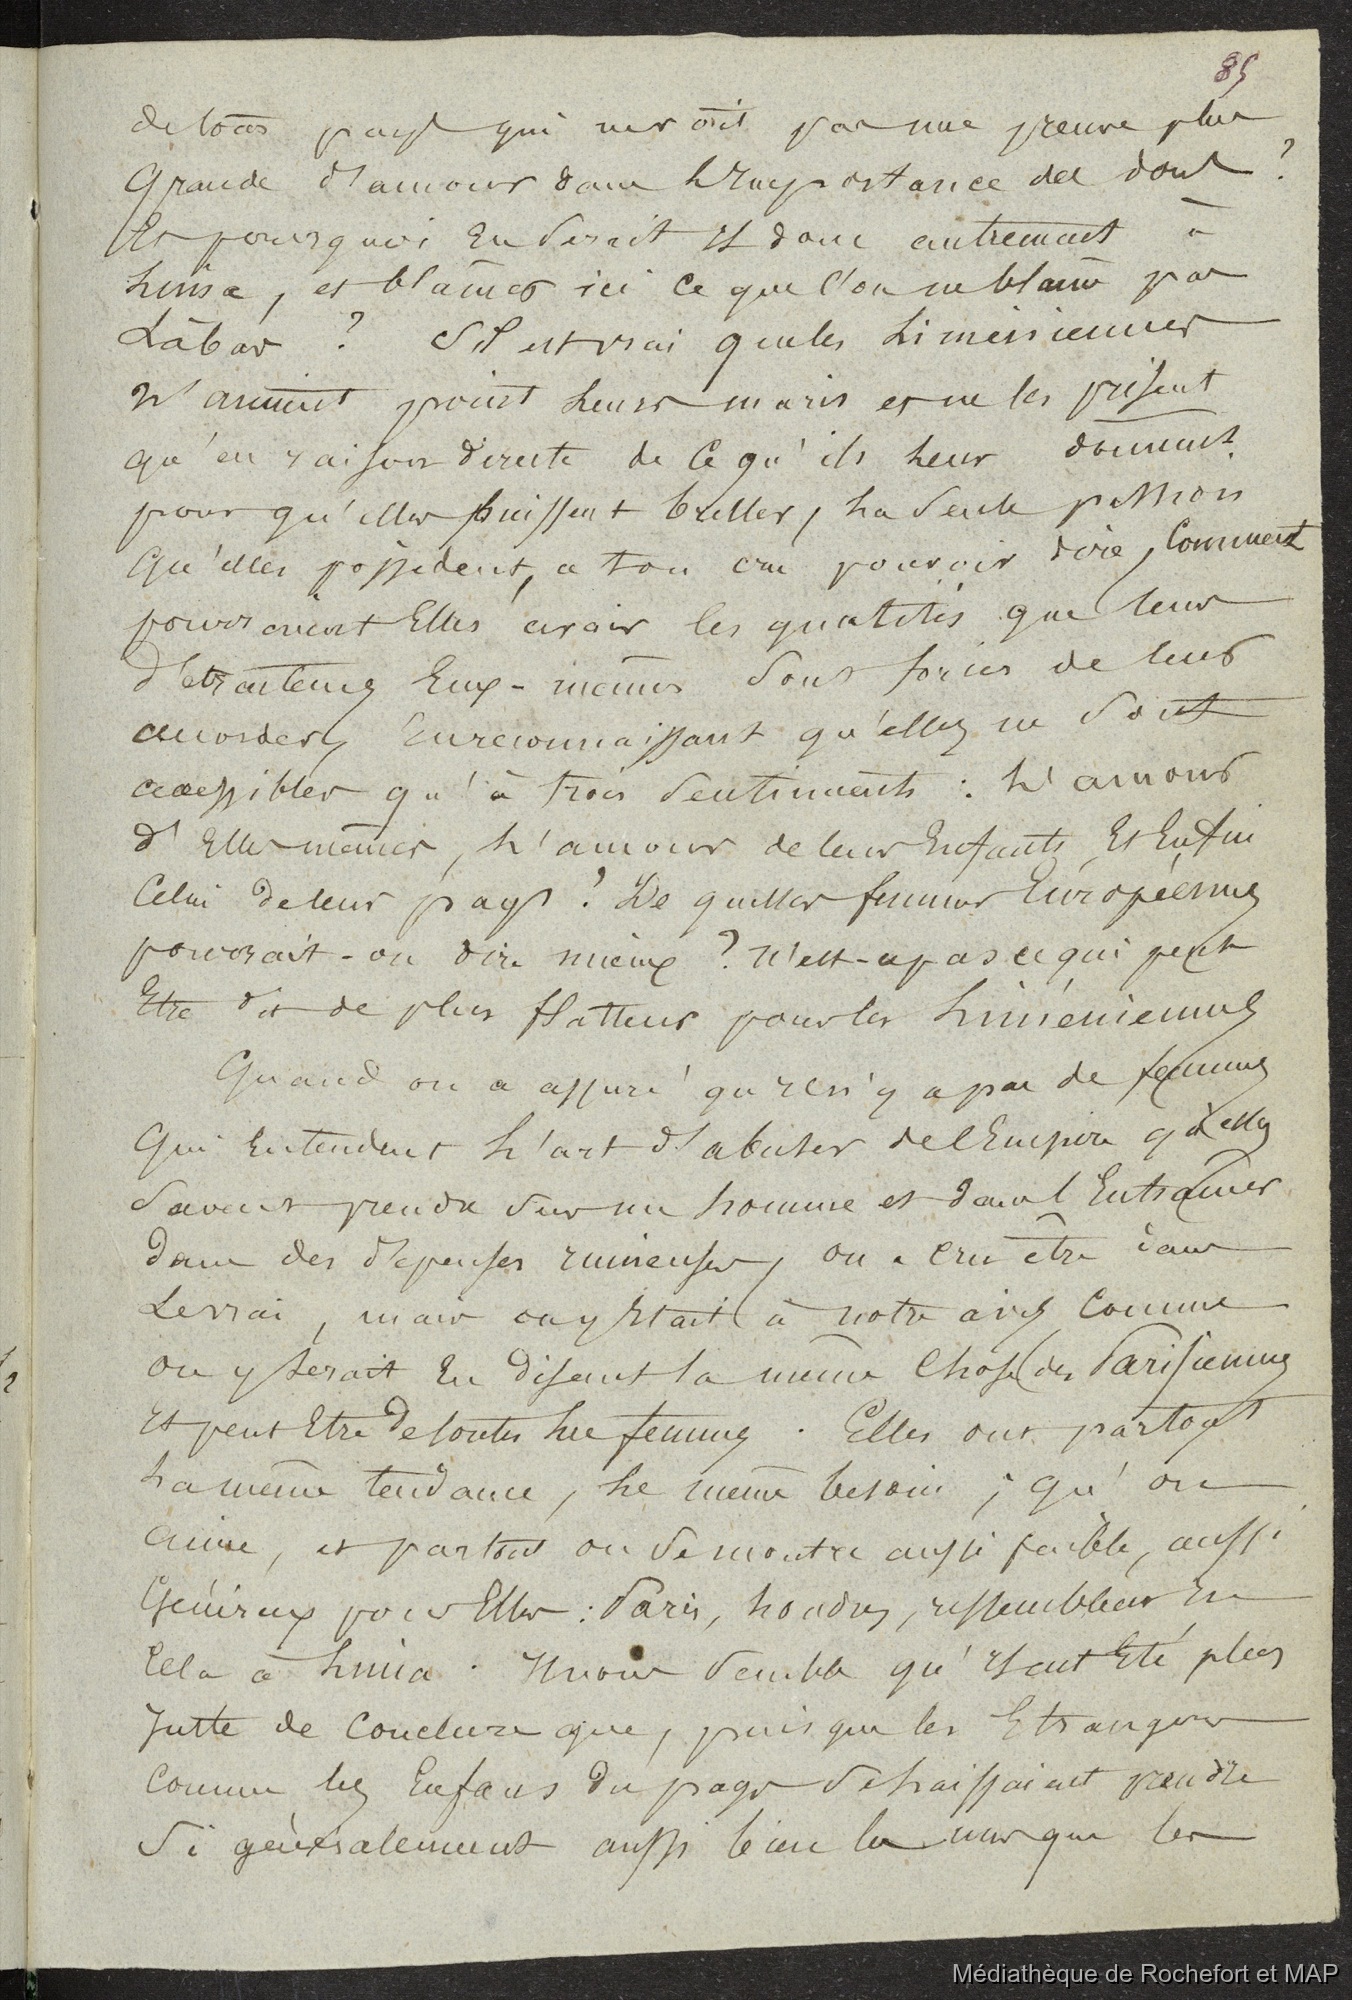 85
de tous pays qui ne voit pas une preuve plus
grande d'amour dans l'importance des dons ?
Et pourquoi en serait il donc autrement à
Lima, et blâmer ici ce que l'on ne blâme pas
Làbas ? S'il est vrai que les Liméniennes
n'aiment point leurs maris et ne les prisent
qu'en raison directe de ce qu'ils leur donnent
pour qu'elles puissent briller, la seule passion
qu'elles possèdent, a ton cru pouvoir dire, Comment
pourraient Elles avoir les qualités que leurs
détracteurs Eux-mêmes sont forcés de leur
accorder, En reconnaissant qu'elles ne sont
accessibles qu'à trois sentiments : L'amour
d'Elles mêmes, L'amour de leurs Enfants Et Enfin
Celui de leur pays ? De quelles femmes Européennes
pourrait-on dire mieux ? N'est-a pas ce qui peut
Etre dit de plus flatteur pour les Liméniennes
Quand on a assuré qu'il n'y a pas de femmes
Qui Entendent L'art d'abuser de l'Empire qu'elles
savent prendre sur un homme et dans l'Entrainer
dans des dépenses ruineuses, on a cru être dans
Le vrai, mais on y Etait à notre avis comme
on y serait En disant la même chose des Parisiennes
Et peut Etre de toutes les femmes . Elles ont partout
La même tendance, Le même besoin ; qu'on
aime, et partout on se montre aussi faible, aussi
Généreux pour Elles : Paris, Londres, ressemblent En
Cela à Lima . Il nous semble qu'il eut Eté plus
Juste de conclure que, puisque les Etrangers
comme les Enfans du pays se laissaient prendre
si généralement aussi bien les uns que les
Médiathèque de Rochefort et MAP